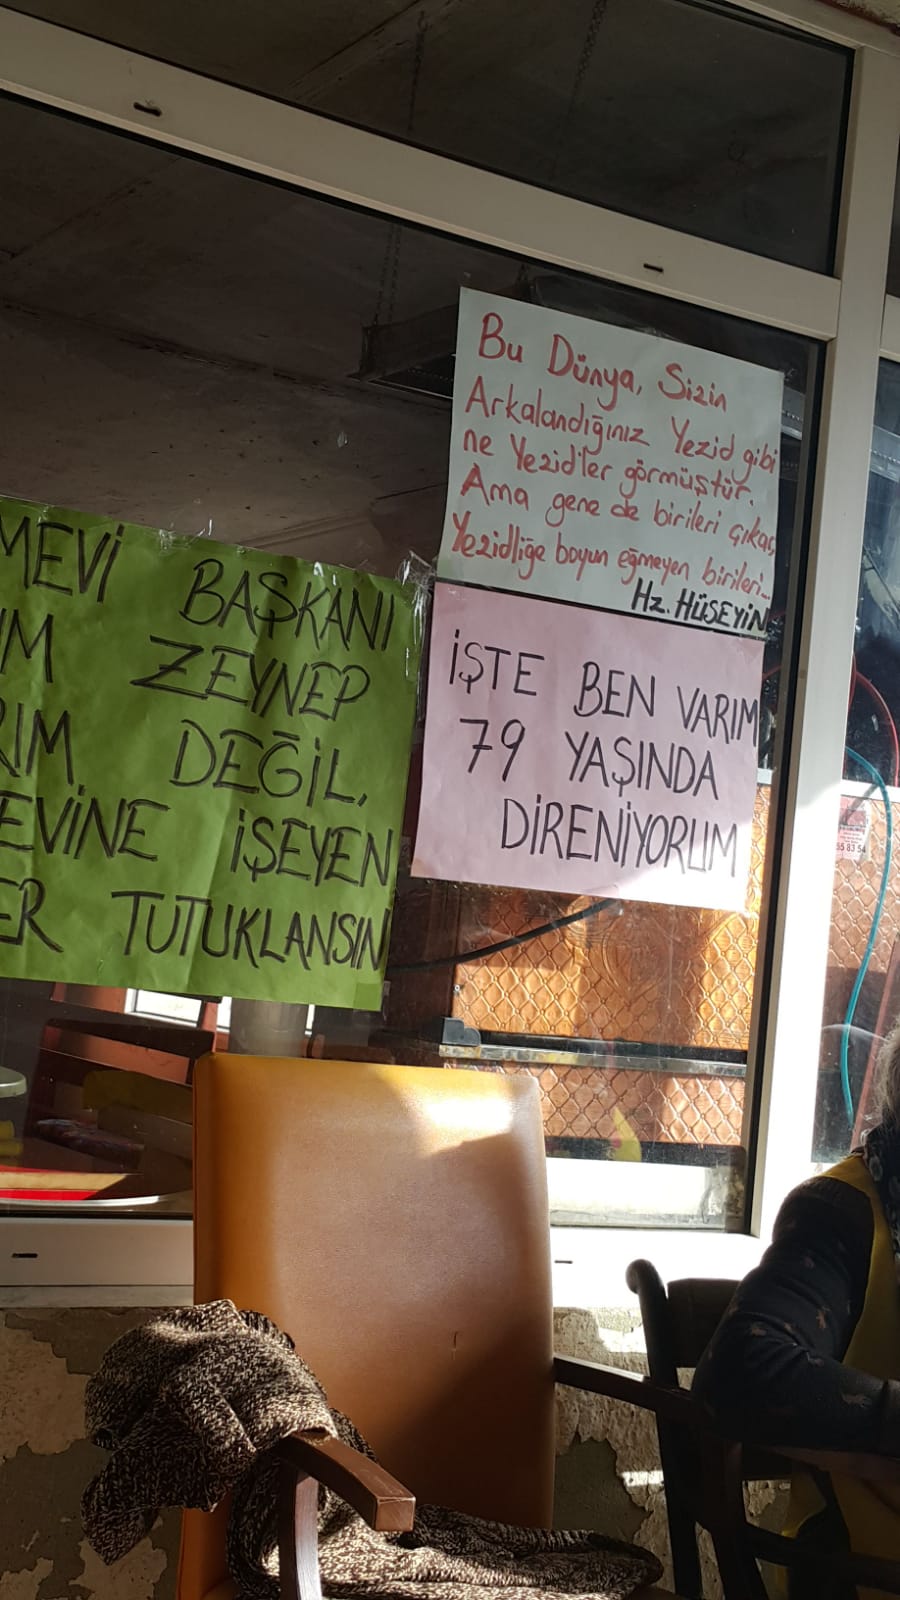 MEVİ BAŞKANI
IM ZEYNEP
RIM DEĞİL,
EVİNE İŞEYEN
ER TUTUKLANSIN
Bu Dünya, Sizin
Arkalandığınız Yezid gibi
ne Yezid'ler görmüştür.
Ama gene de birileri çıkar,
Yezidliğe boyun eğmeyen birileri...
Hz. HÜSEYİN
İŞTE BEN VARIM
79 YAŞINDA
DİRENİYORUM
55 83 54